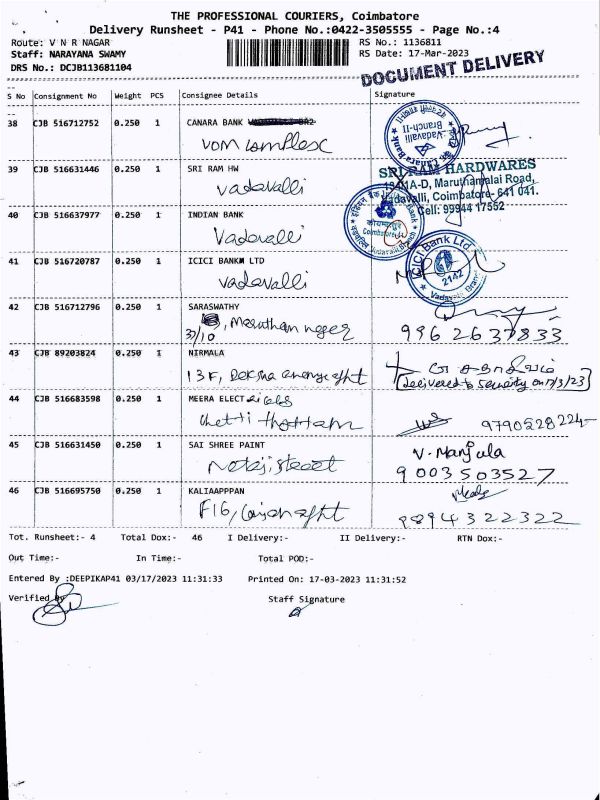 THE PROFESSIONAL COURIERS, Coimbatore
Delivery Runsheet - P41 - Phone No.:0422-3505555 - Page No.:4
Route: V N R NAGAR
RS No.: 1136811
Staff: NARAYANA SWAMY
RS Date: 17-Mar-2023
DRS No.: DCJB113681104
DOCUMENT DELIVERY
S No Consignment No Weight PCS Consignee Details Signature
38 CJB 516712752 0.250 1 CANARA BANK
Vom complex
Canara Bank Vadavalli Branch-II
39 CJB 516631446 0.250 1 SRI RAM HW
Vadavalli
SRI RAM HARDWARES
Maruthamalai Road,
Vadavalli, Coimbatore- 641 041.
Cell: 99944 17552
40 CJB 516637977 0.250 1 INDIAN BANK
Vadavalli
41 CJB 516720787 0.250 1 ICICI BANKM LTD
Vadavalli
ICICI Bank Ltd
2142
Vadavalli Branch
42 CJB 516712796 0.250 1 SARASWATHY
37/10
9962637833
43 CJB 89203824 0.250 1 NIRMALA
13F,
(Delivered to security on 17/3/23)
44 CJB 516683598 0.250 1 MEERA ELECT
Chetti thottam
9790528224
45 CJB 516631450 0.250 1 SAI SHREE PAINT
V. Manjula
9003503527
46 CJB 516695750 0.250 1 KALIAAPPPAN
F16,
9894322322
Tot. Runsheet:- 4 Total Dox:- 46 I Delivery:- II Delivery:- RTN Dox:-
Out Time:- In Time:- Total POD:-
Entered By :DEEPIKAP41 03/17/2023 11:31:33 Printed On: 17-03-2023 11:31:52
Verified By
Staff Signature